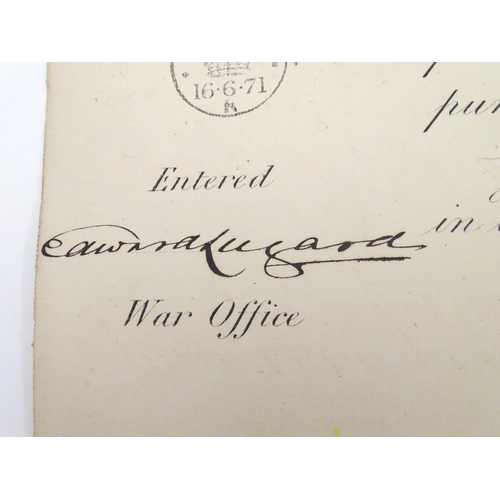 16·6·71
pur
Entered
in
Edward Lugard
War Office